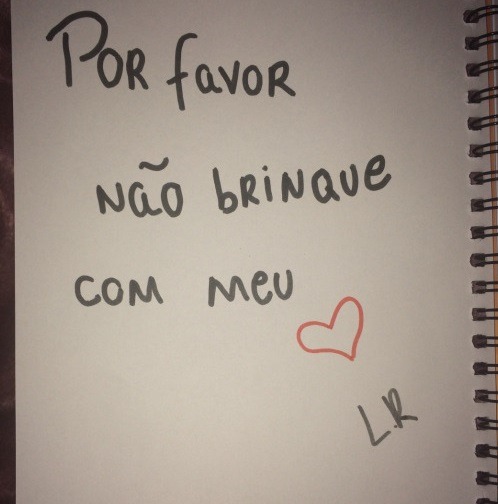 Por favor
não brinque
com meu
L.R